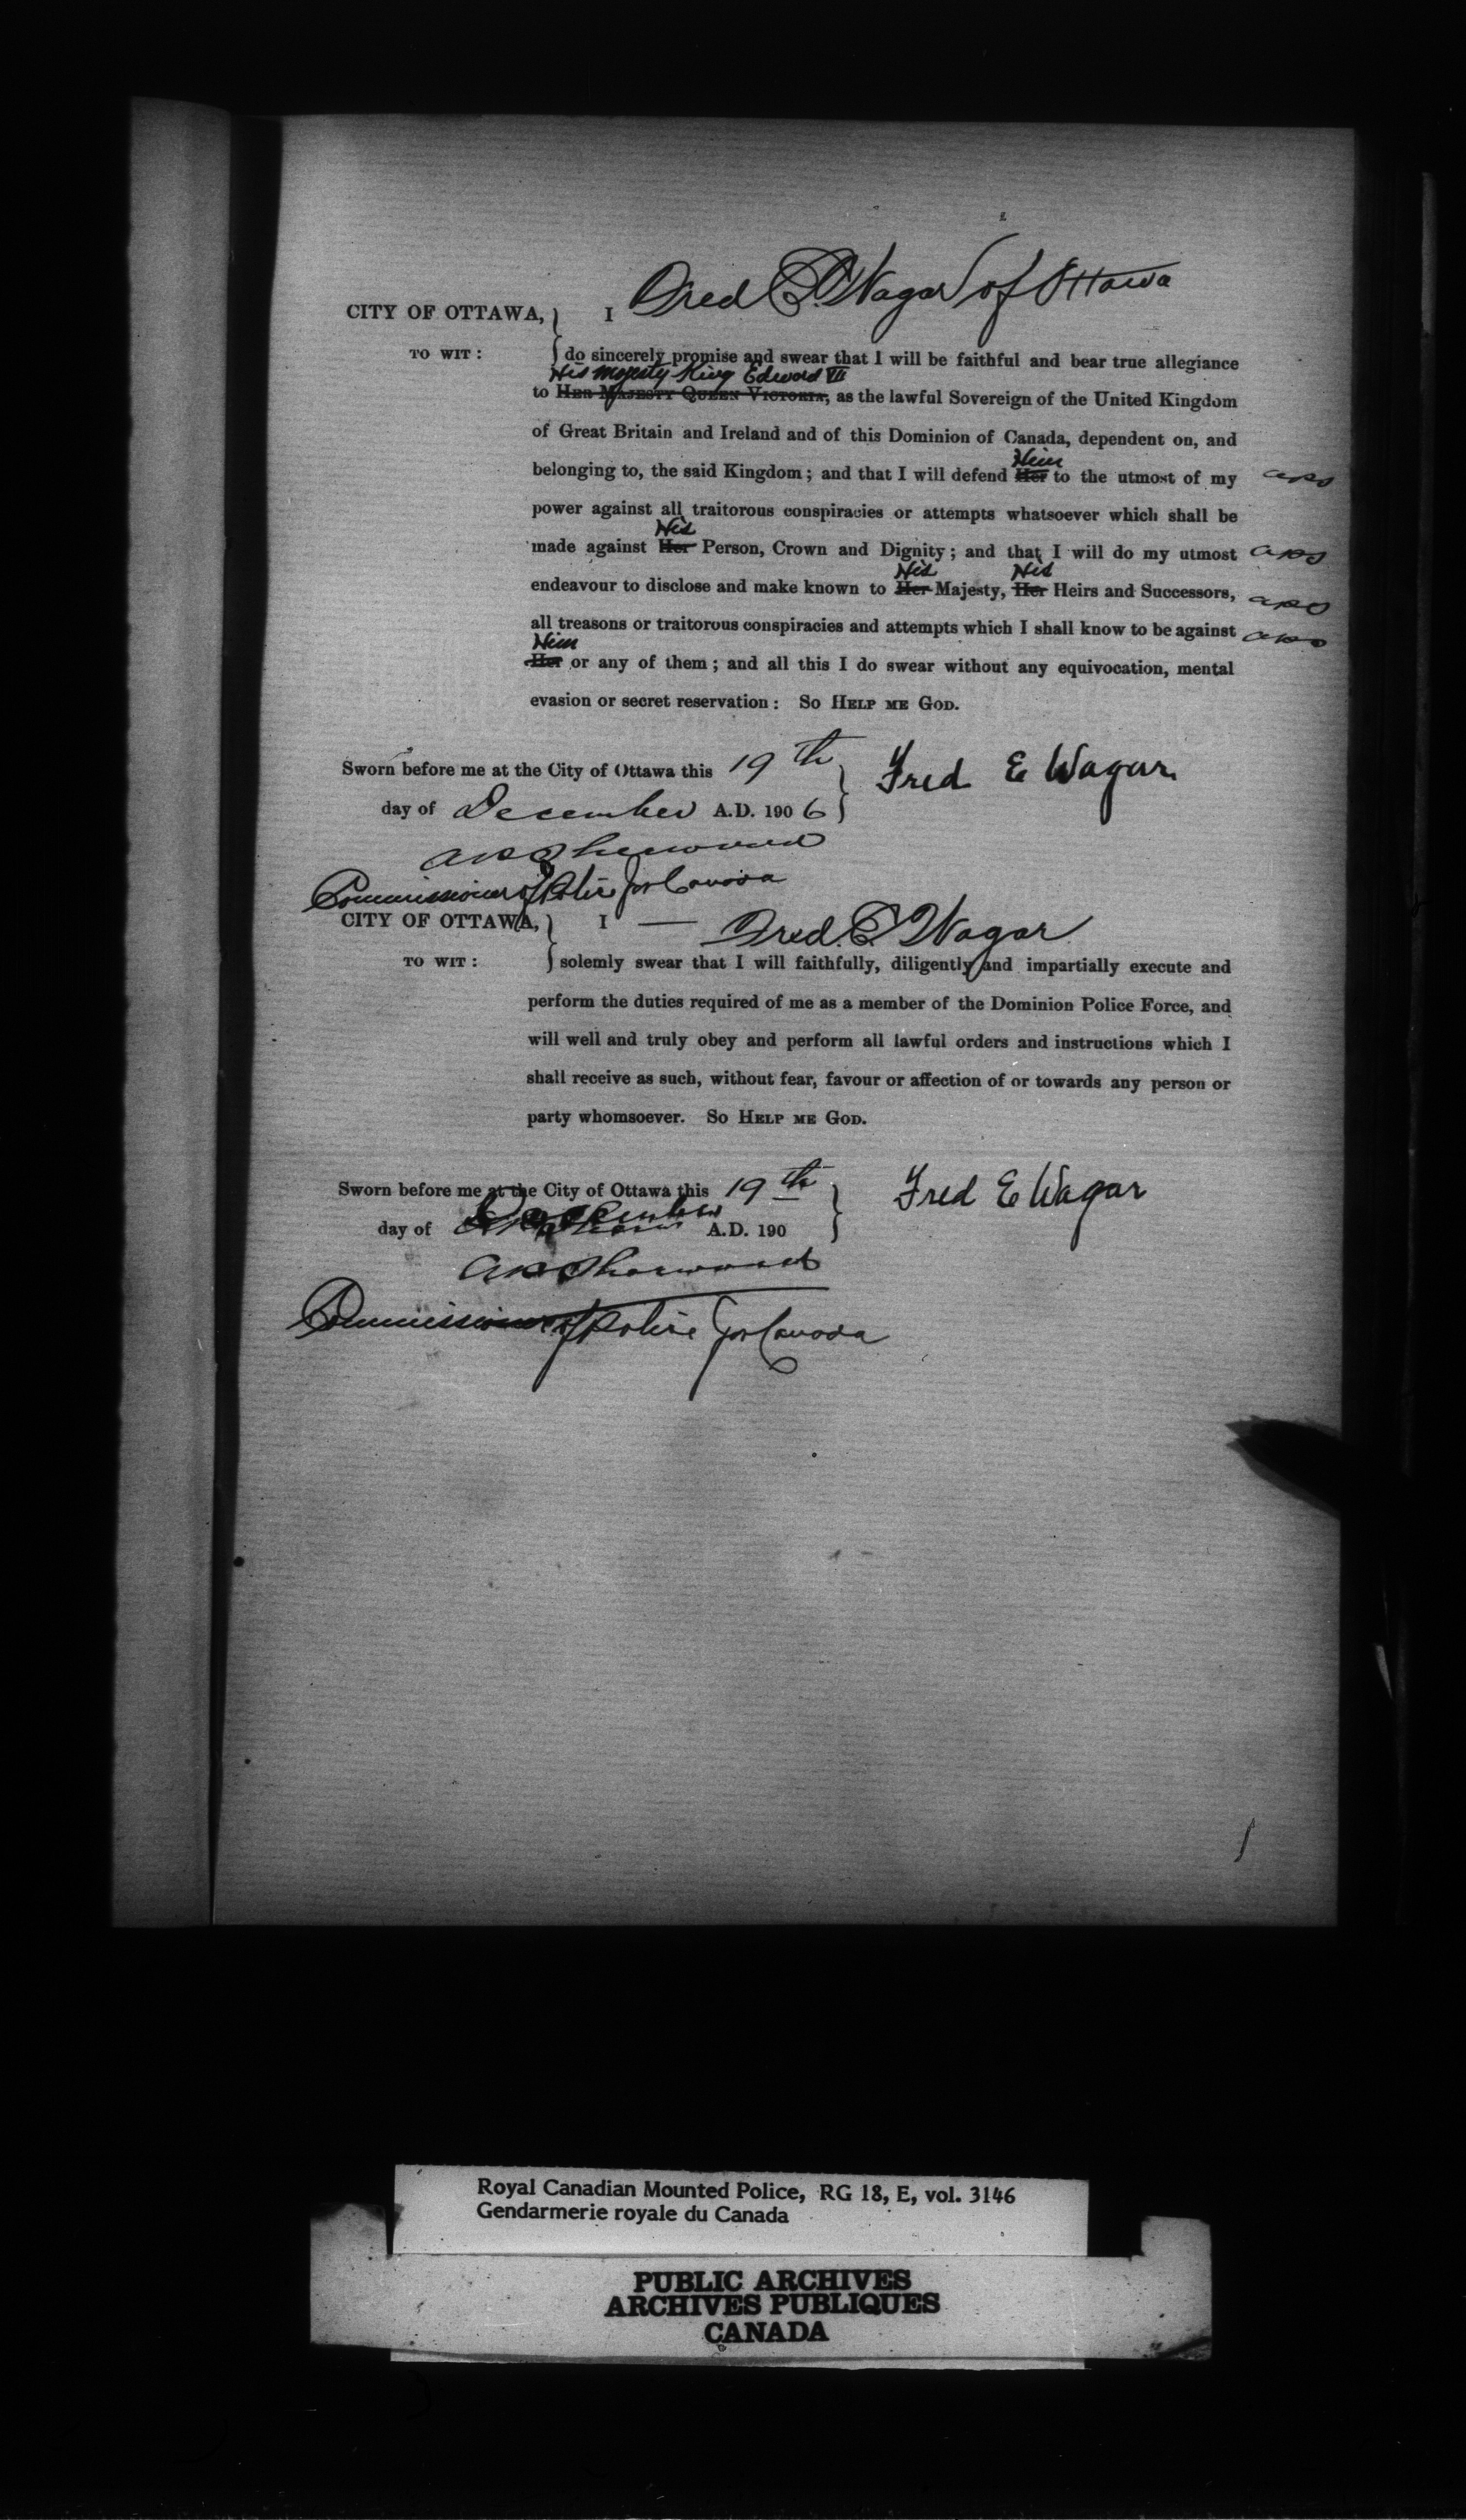 CITY OF OTTAWA, } I Fred E. Wagar of Ottawa
TO WIT : } do sincerely promise and swear that I will be faithful and bear true allegiance
His Majesty King Edward VII
to HER MAJESTY QUEEN VICTORIA, as the lawful Sovereign of the United Kingdom
of Great Britain and Ireland and of this Dominion of Canada, dependent on, and
Him
belonging to, the said Kingdom ; and that I will defend Her to the utmost of my APS
power against all traitorous conspiracies or attempts whatsoever which shall be
His
made against Her Person, Crown and Dignity ; and that I will do my utmost APS
His His
endeavour to disclose and make known to Her Majesty, Her Heirs and Successors, APS
all treasons or traitorous conspiracies and attempts which I shall know to be against APS
Him
Her or any of them ; and all this I do swear without any equivocation, mental
evasion or secret reservation : SO HELP ME GOD.
Sworn before me at the City of Ottawa this 19th } Fred E Wagar
day of December A.D. 1906
AP Sherwood
Commissioner of Police for Canada
CITY OF OTTAWA, } I — Fred. E. Wagar
TO WIT : } solemly swear that I will faithfully, diligently and impartially execute and
perform the duties required of me as a member of the Dominion Police Force, and
will well and truly obey and perform all lawful orders and instructions which I
shall receive as such, without fear, favour or affection of or towards any person or
party whomsoever. SO HELP ME GOD.
Sworn before me at the City of Ottawa this 19th } Fred E Wagar
day of December A.D. 190
AP Sherwood
Commissioner of Police for Canada
Royal Canadian Mounted Police, RG 18, E, vol. 3146
Gendarmerie royale du Canada
PUBLIC ARCHIVES
ARCHIVES PUBLIQUES
CANADA